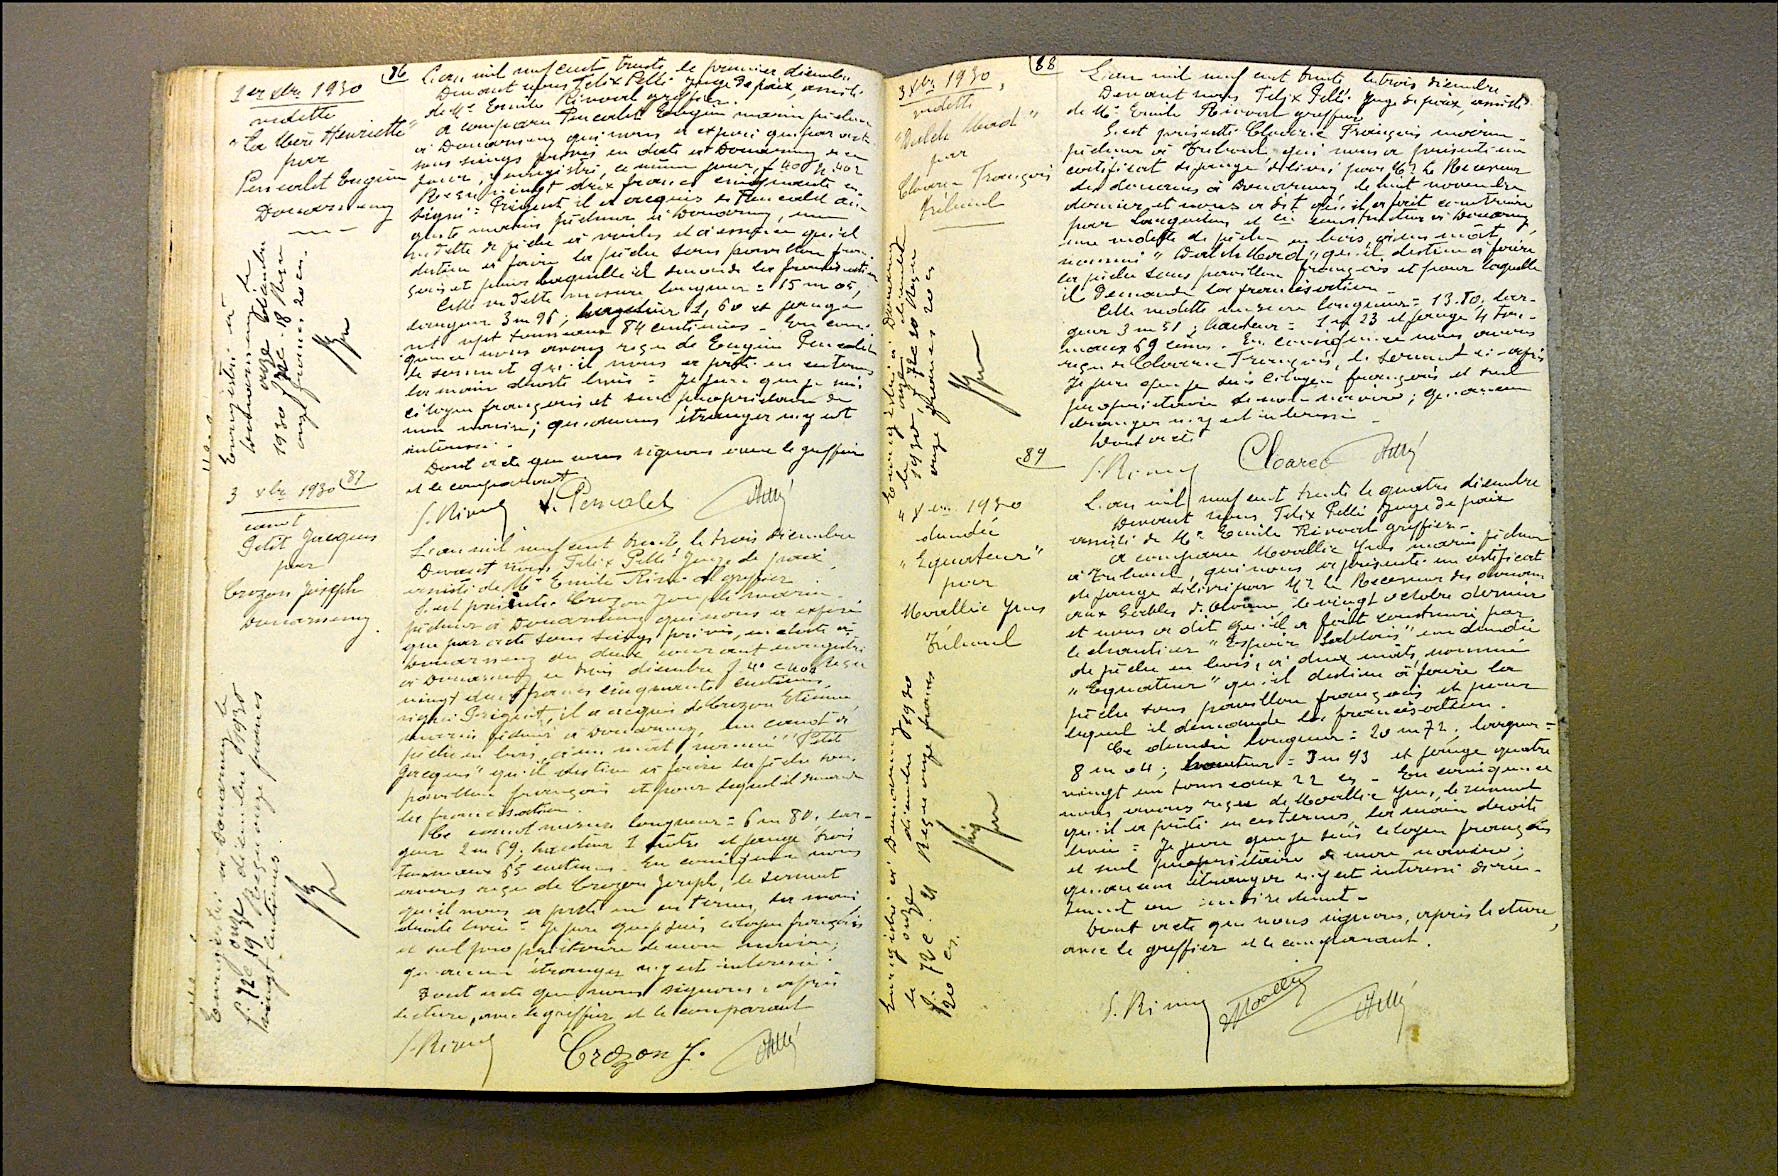 1er xbre 1930
vedette
"La Mère Henriette"
par
Pencalet Eugène
Douarnenez
Enregistré à
Douarnenez le
onze décembre
1930 f 72 c. 18 Reçu
onze francs 20 cen.
86
L'an mil neuf cent trente, le premier décembre
Devant nous Felix Pellé Juge de paix, assisté
de Me Emile Rivoal greffier.
A comparu Pencalet Eugène marin pêcheur
à Douarnenez qui nous a exposé que par acte
sous seings privés en date à Douarnenez de ce
jour, enregistré, ce même jour, f 40 c. 402
Reçu vingt deux francs cinquante cen.
signé: Prigent, il a acquis de Pencalet
marin pêcheur à Douarnenez, une
vedette de pêche à voiles et à essence qu'il
destine à faire la pêche sous pavillon fran-
çais et pour laquelle il demande la francisation
Cette vedette mesure longueur = 15 m 05,
largeur 3 m 96; hauteur 1,60 et jauge
sept tonneaux 84 centièmes. En consé-
quence nous avons reçu de Eugène Pencalet
le serment qu'il nous a prêté en ces termes
la main droite levée = Je jure que je suis
citoyen français et seul propriétaire de
mon navire; qu'aucun étranger n'y est
intéressé.
Dont acte que nous signons avec le greffier
et le comparant
E. Rivoal E. Pencalet Pellé
3 xbre 1930
canot
Petit Jacques
par
Crozon Joseph
Douarnenez
Enregistré à Douarnenez le
onze décembre 1930
f. 72 c 19 Reçu onze francs
vingt centimes
87
L'an mil neuf cent trente le trois décembre
Devant nous Felix Pellé Juge de paix
assisté de Me Emile Rivoal greffier
S'est présenté Crozon Joseph marin-
pêcheur à Douarnenez qui nous a exposé
que par acte sous seings privés, en date à
Douarnenez du deux courant enregistré
à Douarnenez le trois décembre f 40 c 408 Reçu
vingt deux francs cinquante centimes,
signé Prigent, il a acquis de Crozon Etienne
marin pêcheur à Douarnenez, un canot de
pêche en bois, à un mât, nommé "Petit
Jacques" qu'il destine à faire la pêche sous
pavillon français et pour lequel il demande
la francisation.
Ce canot mesure longueur = 6 m 80, lar-
geur 2 m 69, hauteur 1 mètre et jauge trois
tonneaux 65 centièmes. En conséquence nous
avons reçu de Crozon Joseph, le serment
qu'il nous a prêté en ces termes, la main
droite levée = Je jure que je suis citoyen français
et seul propriétaire de mon navire;
qu'aucun étranger n'y est intéressé.
Dont acte que nous signons après
lecture, avec le greffier et le comparant
E. Rivoal Crozon J. Pellé
3 xbre 1930
vedette
"Dalch Mad"
par
Cloarec François
Tréboul
Enregistré à Douarnenez
le onze décembre
1930, f 72 c 20 Reçu
onze francs 20 cen
88
L'an mil neuf cent trente le trois décembre
Devant nous Felix Pellé Juge de paix, assisté
de Me Emile Rivoal greffier
S'est présenté Cloarec François marin-
pêcheur à Tréboul qui nous a présenté un
certificat de jauge délivré par Mr le Receveur
des douanes à Douarnenez, le huit novembre
dernier, et nous a dit qu'il a fait construire
par Lanquetin et Cie constructeur à Douarnenez,
une vedette de pêche en bois, à un mât,
nommé "Dalch Mad" qu'il destine à faire
la pêche sous pavillon français et pour laquelle
il demande la francisation.
Cette vedette mesure longueur = 13.80, lar-
geur 3 m 51; hauteur = 1 m 23 et jauge 4 ton-
neaux 69 cèmes. En conséquence nous avons
reçu de Cloarec François, le serment ci-après
Je jure que je suis citoyen français et seul
propriétaire de mon navire; qu'aucun
étranger n'y est intéressé
Dont acte
E. Rivoal Cloarec Pellé
4 xbre 1930
dundée
"Equateur"
par
Morallic Yves
Tréboul
Enregistré à Douarnenez
le onze décembre 1930
f. 72 c. 21 Reçu onze francs
20 cen.
89
L'an mil neuf cent trente le quatre décembre
Devant nous Felix Pellé Juge de paix
assisté de Me Emile Rivoal greffier.
A comparu Morallic Yves marin pêcheur
à Tréboul, qui nous a présenté un certificat
de jauge délivré par Mr le Receveur des douanes
aux Sables d'Olonne, le vingt octobre dernier
et nous a dit qu'il a fait construire par
le chantier "Espoir Sablais" un dundée
de pêche en bois, à deux mâts, nommé
"Equateur" qu'il destine à faire la
pêche sous pavillon français et pour
lequel il demande la francisation.
Ce dundée longueur = 20 m 72, largeur =
8 m 04; hauteur = 3 m 93 et jauge quatre
vingt un tonneaux 22 cen. En conséquence
nous avons reçu de Morallic Yves, le serment
qu'il a prêté en ces termes, la main droite
levée = Je jure que je suis citoyen français
et seul propriétaire de mon navire;
qu'aucun étranger n'y est intéressé direc-
tement ou indirectement.
Dont acte que nous signons, après lecture,
avec le greffier et le comparant.
E. Rivoal Morallic Pellé